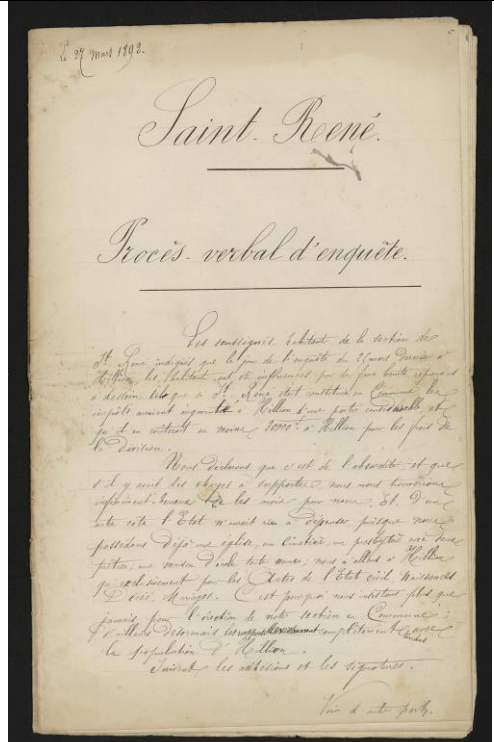 Le 27 Mars 1893.
Saint-René.
Procès-verbal d'enquête.
Les soussignés, habitant de la section de
St. René indignés que le jour de l'enquête du 26 mars dernier à
Hillion, les habitant ont été influencés par de faux bruits repandus
à dessein, tels que si St. René était constitué en Commune les
impôts seraient augmenté à Hillion d'une partie considérable, et
qu'il en coûterait au moins 20000 à Hillion pour les frais de
la division.
Nous déclarons que c'est de l'absurdité, et que
s'il y avait des charges à supporter nous nous
les avoir pour nous. Et D'un
autre côté l'Etat n'aurait rien à dépenser puisque nous
possédons déjà une église, un cimetière, un presbytère avec deux
prêtres, une maison d'école toute neuve; nous n'allons à Hillion
qu'exclusivement pour les Actes de l'Etat civil, Naissances
Décès, Mariages. C'est pourquoi nous insistons plus que
jamais pour l'érection de notre section en Commune;
D'ailleurs désormais les complètement avec
la population d'Hillion.
Suivent les adhésions et les signatures.